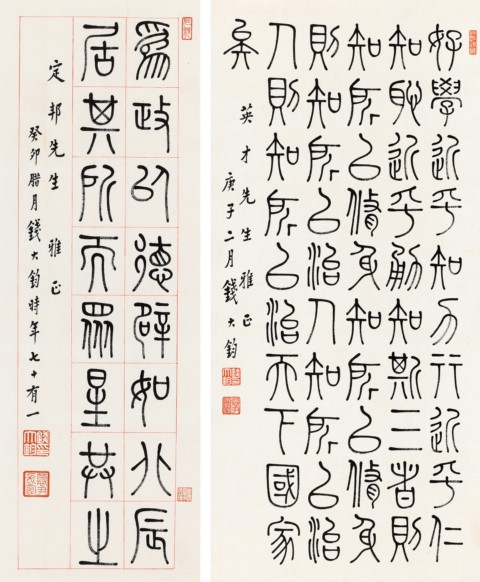 好學近乎知力行近乎仁
知恥近乎勇知斯三者則
知所以脩身知所以脩身
則知所以治人知所以治
人則知所以治天下國家
矣
英才先生雅正
庚子二月錢大鈞
爲政以德辟如北辰
居其所而眾星共之
定邦先生雅正
癸卯腊月錢大鈞時年七十有一